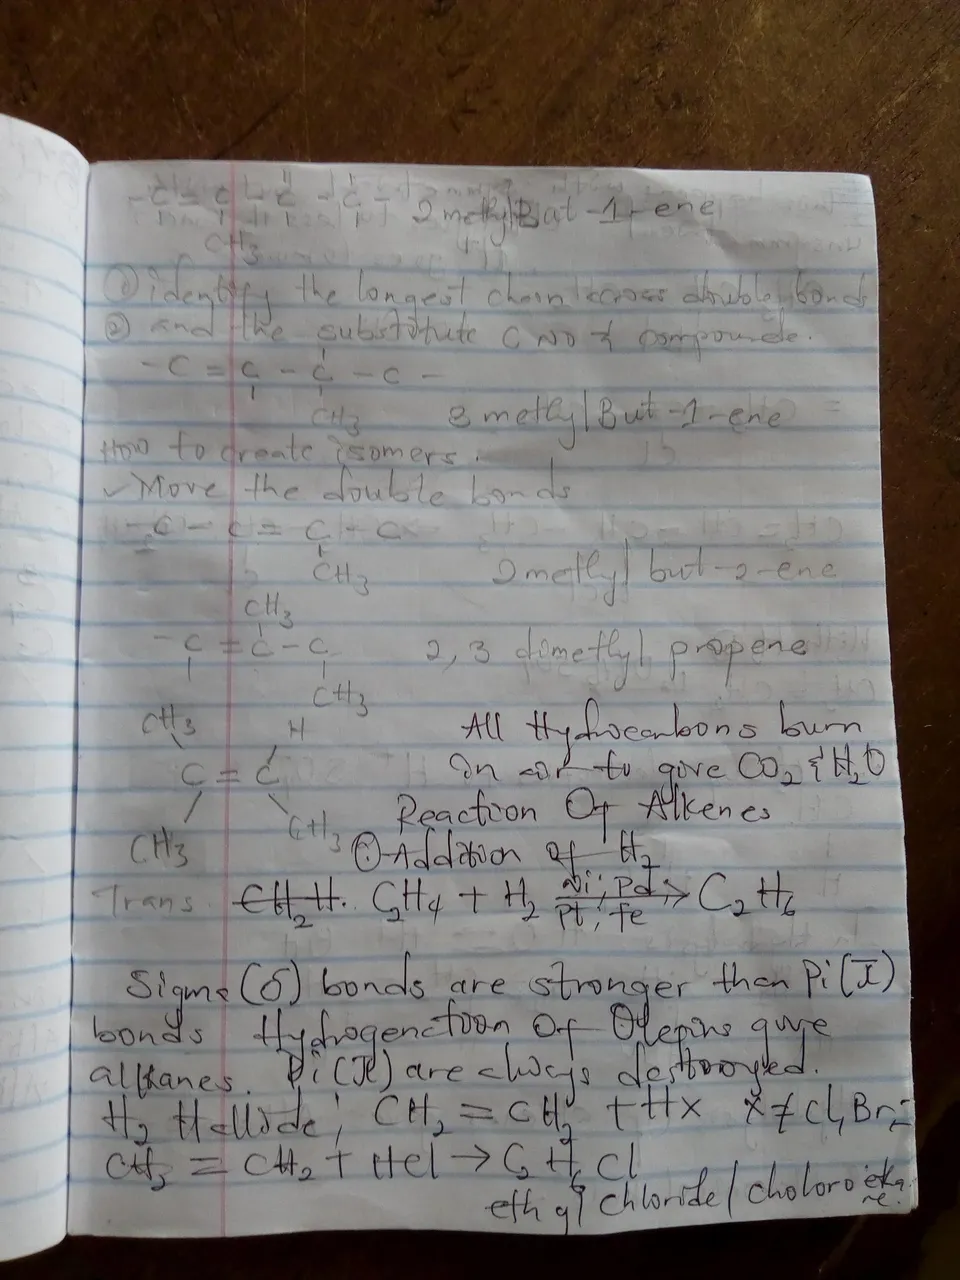 -C=C-C-C- 2 methyl But-1-ene
CH3
① identify the longest chain across double bonds
② and the substitute C NO of compounde.
-C=C-C-C-
CH3 3 methyl But-1-ene
How to create isomers.
✓Move the double bonds
-C-C=C-C
CH3 2 methyl but-2-ene
CH3
-C=C-C 2, 3 dimethyl propene
CH3
CH3 H All Hydrocarbons burn
C=C in air to give CO2 & H2O
Reaction Of Alkenes
CH3 CH3 ① Addition of H2
Trans CH2H. C2H4 + H2 Ni; Pd → C2H6
Pt; Fe
Sigma (δ) bonds are stronger than Pi (π)
bonds Hydrogenction Of Olepins give
alkanes. Pi (π) are always destrooyed.
H2 Hallide; CH2=CH2 + HX X≠Cl, Br,
CH2=CH2 + HCl → C2H6Cl
ethyl chloride/choloroetha
ne.